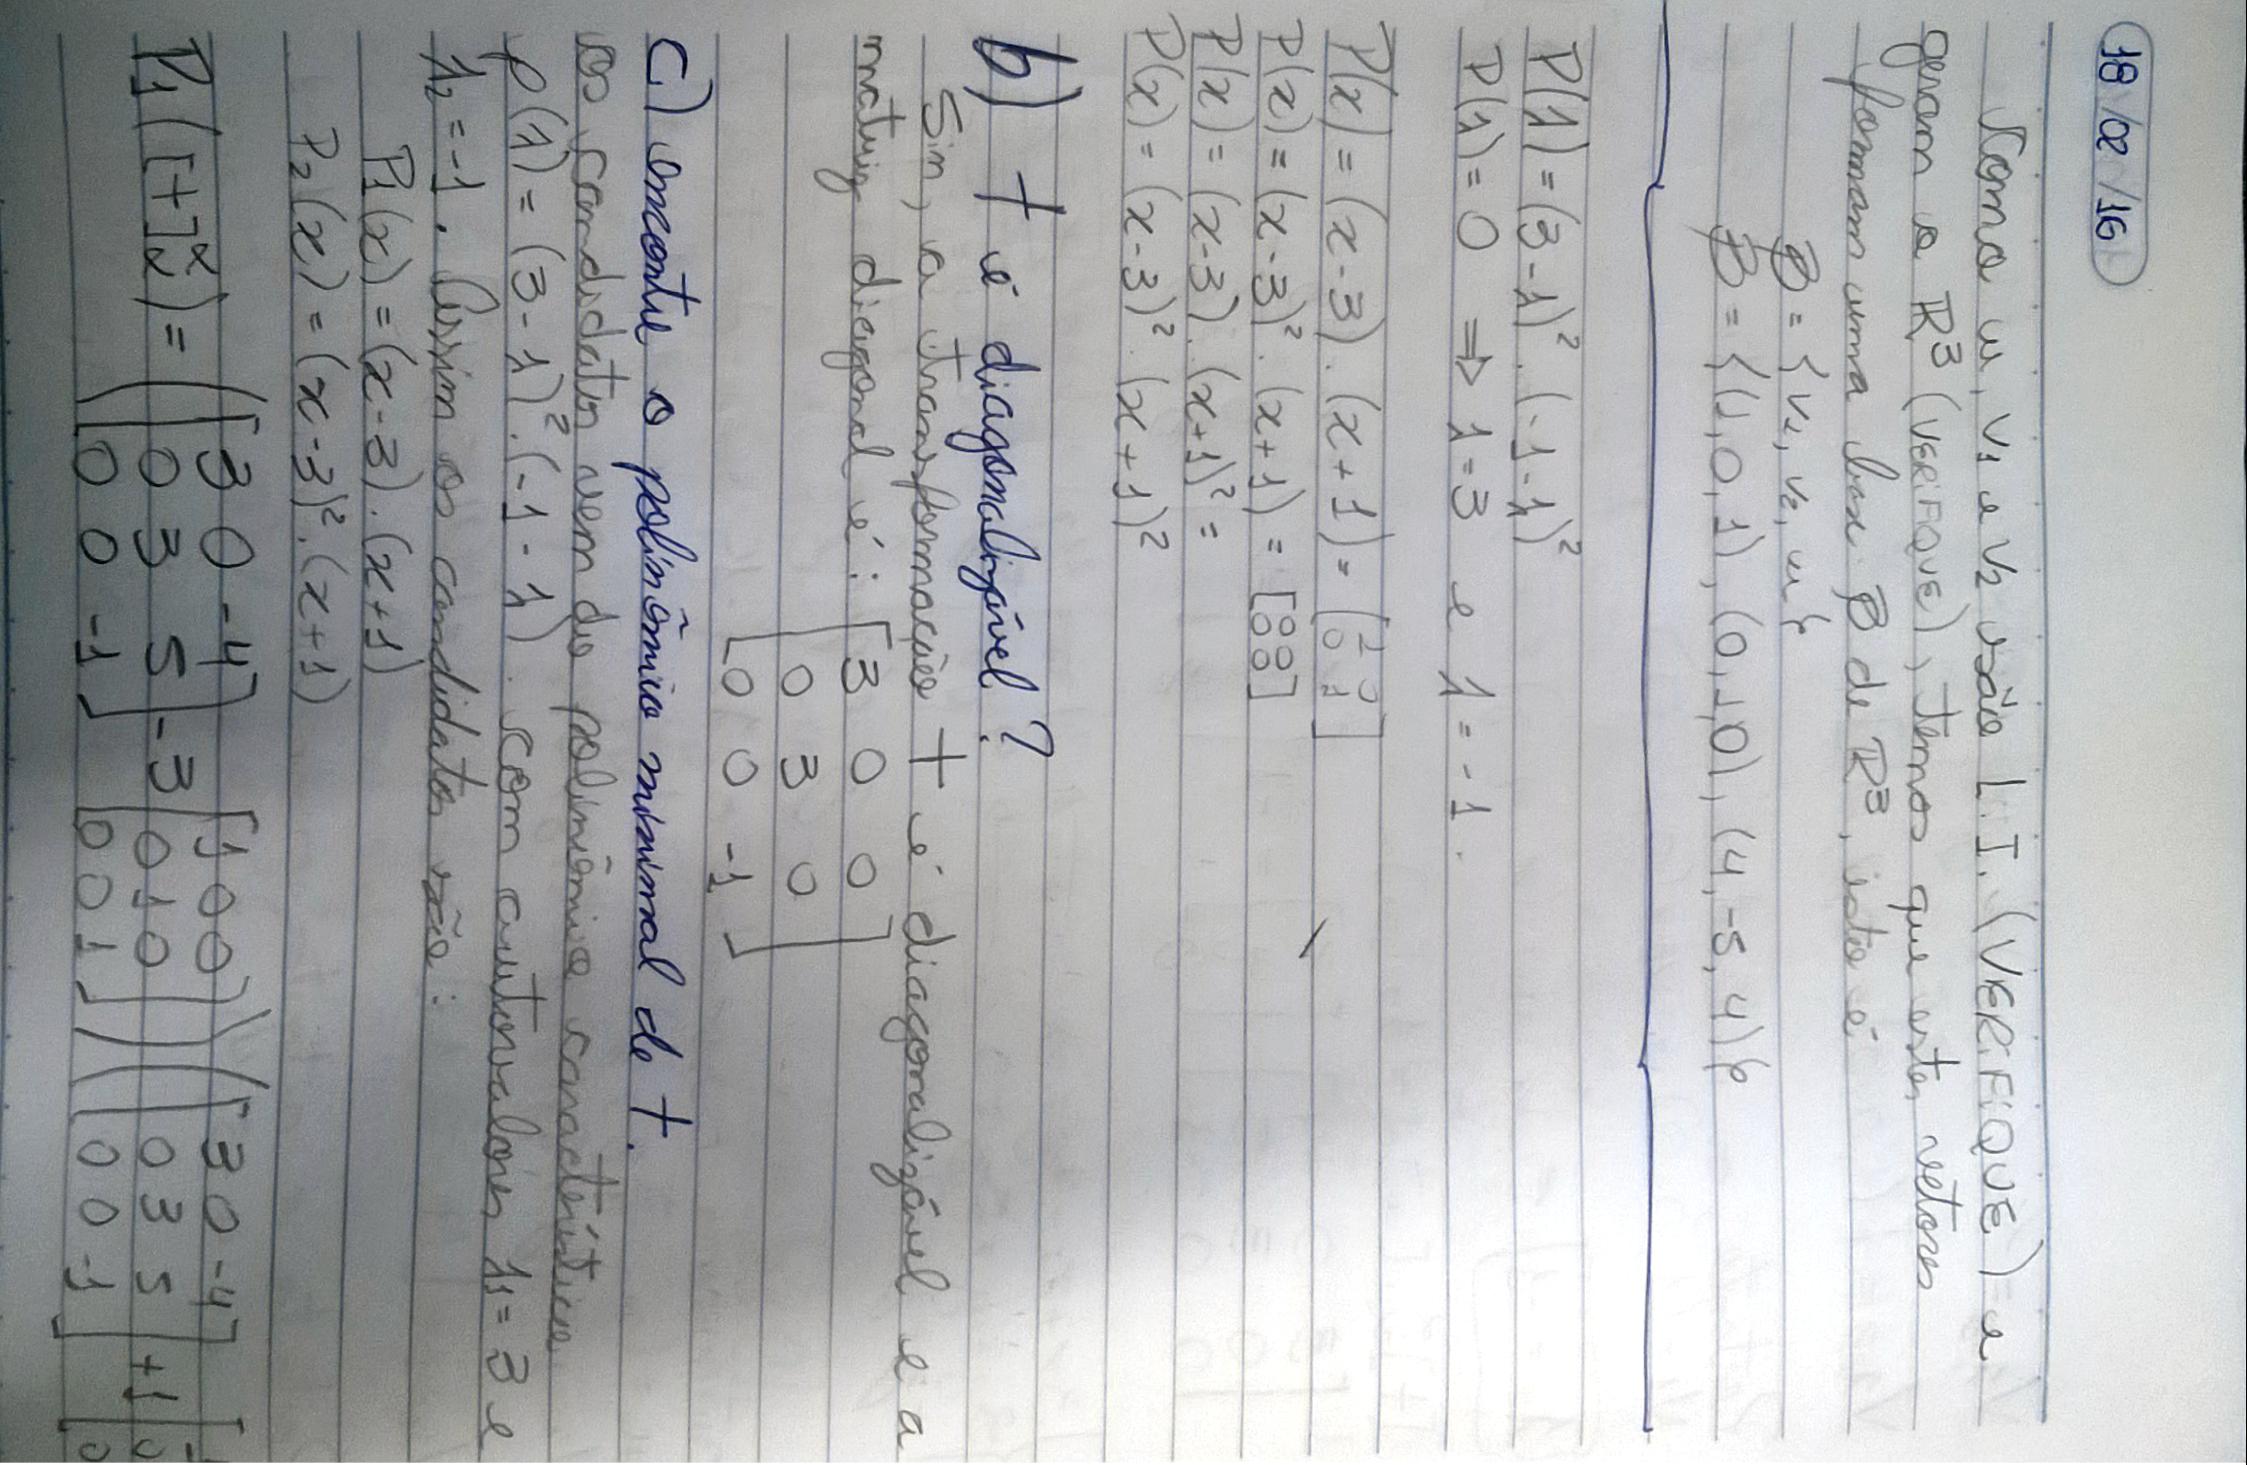 18/02/16
Como u, v1 e v2 são L.I. (VERIFIQUE) e
geram o R³ (VERIFIQUE), temos que estes vetores
formam uma base β de R³, isto é
β = {v1, v2, u}
β = {(1,0,1), (0,1,0), (4,-5,4)}
P(λ) = (3-λ)² . (-1-λ)²
P(λ) = 0 ⇒ λ = 3 e λ = -1.
P(x) = (x-3) . (x+1) = [
P(x) = (x-3)² . (x+1) = [0 0
0 0]
P(x) = (x-3) . (x+1)² =
P(x) = (x-3)² . (x+1)²
b) T é diagonalizável?
Sim, a transformação T é diagonalizável e a
matriz diagonal é: [3 0 0
0 3 0
0 0 -1]
c) encontre o polinômio minimal de T.
os candidatos vem do polinômio característico
p(λ) = (3-λ)² . (-1-λ). com autovalores λ1 = 3 e
λ2 = -1. Assim os candidatos são:
P1(x) = (x-3) . (x+1)
P2(x) = (x-3)² . (x+1)
P1([T]αα) = ([3 0 -4
0 3 5
0 0 -1] - 3 [1 0 0
0 1 0
0 0 1]) ([3 0 -4
0 3 5
0 0 -1] + 1 [